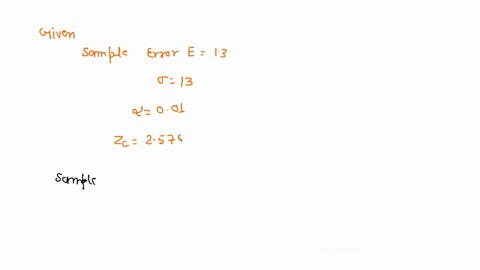 Given
Sample Error E = 1.3
σ = 13
α = 0.01
Zc = 2.576
Sample